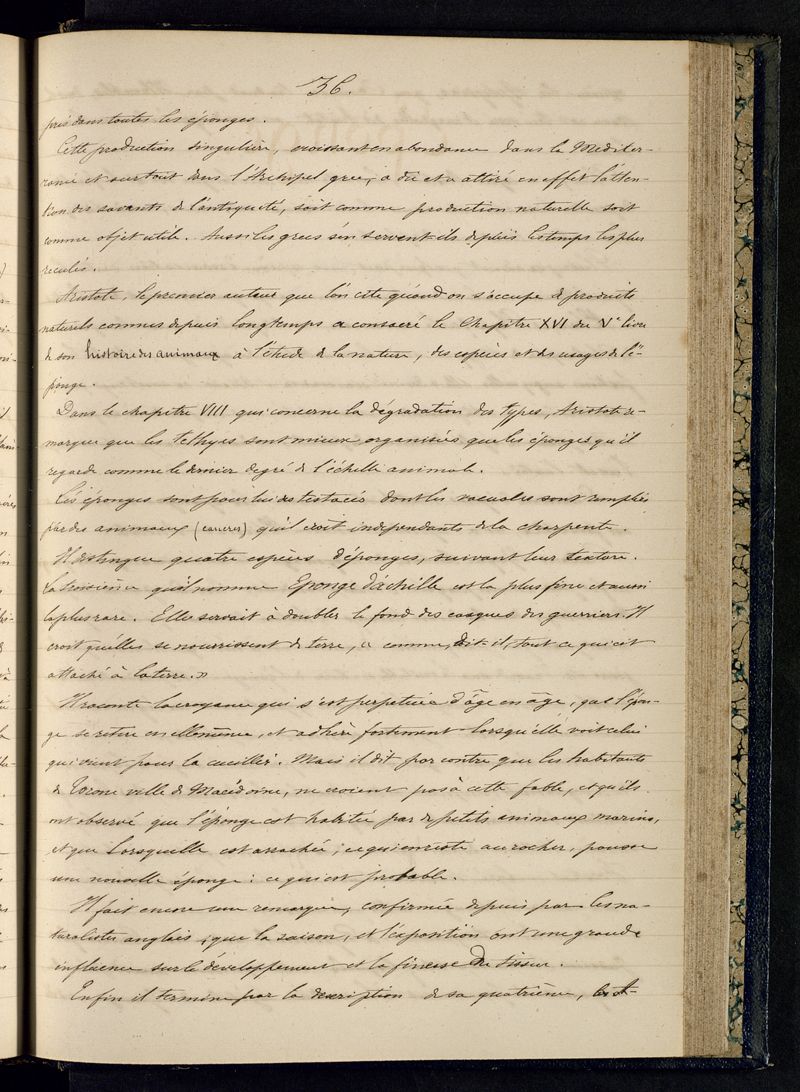 36.
pris dans toutes les éponges.
Cette production singulière, croissant en abondance dans la Méditer-
ranée et surtout dans l'Archipel grec, a dû et a attiré en effet l'atten-
tion des savants de l'antiquité, soit comme production naturelle soit
comme objet utile. Aussi les grecs s'en servent-ils depuis les temps les plus
reculés.
Aristote, le premier auteur que l'on cite quand on s'occupe de produits
naturels connus depuis longtemps a consacré le Chapitre XVI du Ve livre
de son histoire des animaux à l'étude de la nature, des espèces et des usages de l'é-
ponge.
Dans le chapitre VIII qui concerne la dégradation des types, Aristote re-
marque que les tethyes sont mieux organisées que les éponges qu'il
regarde comme le dernier degré de l'échelle animale.
Les éponges sont pour lui des testacés dont les vacuoles sont remplies
par des animaux (cancres) qu'il croit indépendants de la charpente.
Il distingue quatre espèces d'éponges, suivant leur texture.
La troisième qu'il nomme Eponge d'Achille est la plus fine et aussi
la plus rare. Elle servait à doubler le fond des casques des guerriers. Il
croit qu'elles se nourrissent de terre, « comme, dit-il, tout ce qui est
attaché à la terre. »
Il raconte la croyance qui s'est perpétuée d'âge en âge, que l'épon-
ge se retire en elle même, et adhère fortement lorsqu'elle voit celui
qui vient pour la cueillir. Mais il dit par contre que les habitants
de Torone ville de Macédoine, ne croient pas à cette fable, et qu'ils
ont observé que l'éponge est habitée par de petits animaux marins,
et que lorsqu'elle est arrachée, ce qui en reste au rocher, pousse
une nouvelle éponge : ce qui est probable.
Il fait encore une remarque, confirmée depuis par les na-
turalistes anglais, que la saison, et l'exposition ont une grande
influence sur le développement et la finesse du tissu.
Enfin il termine par la description de sa quatrième,